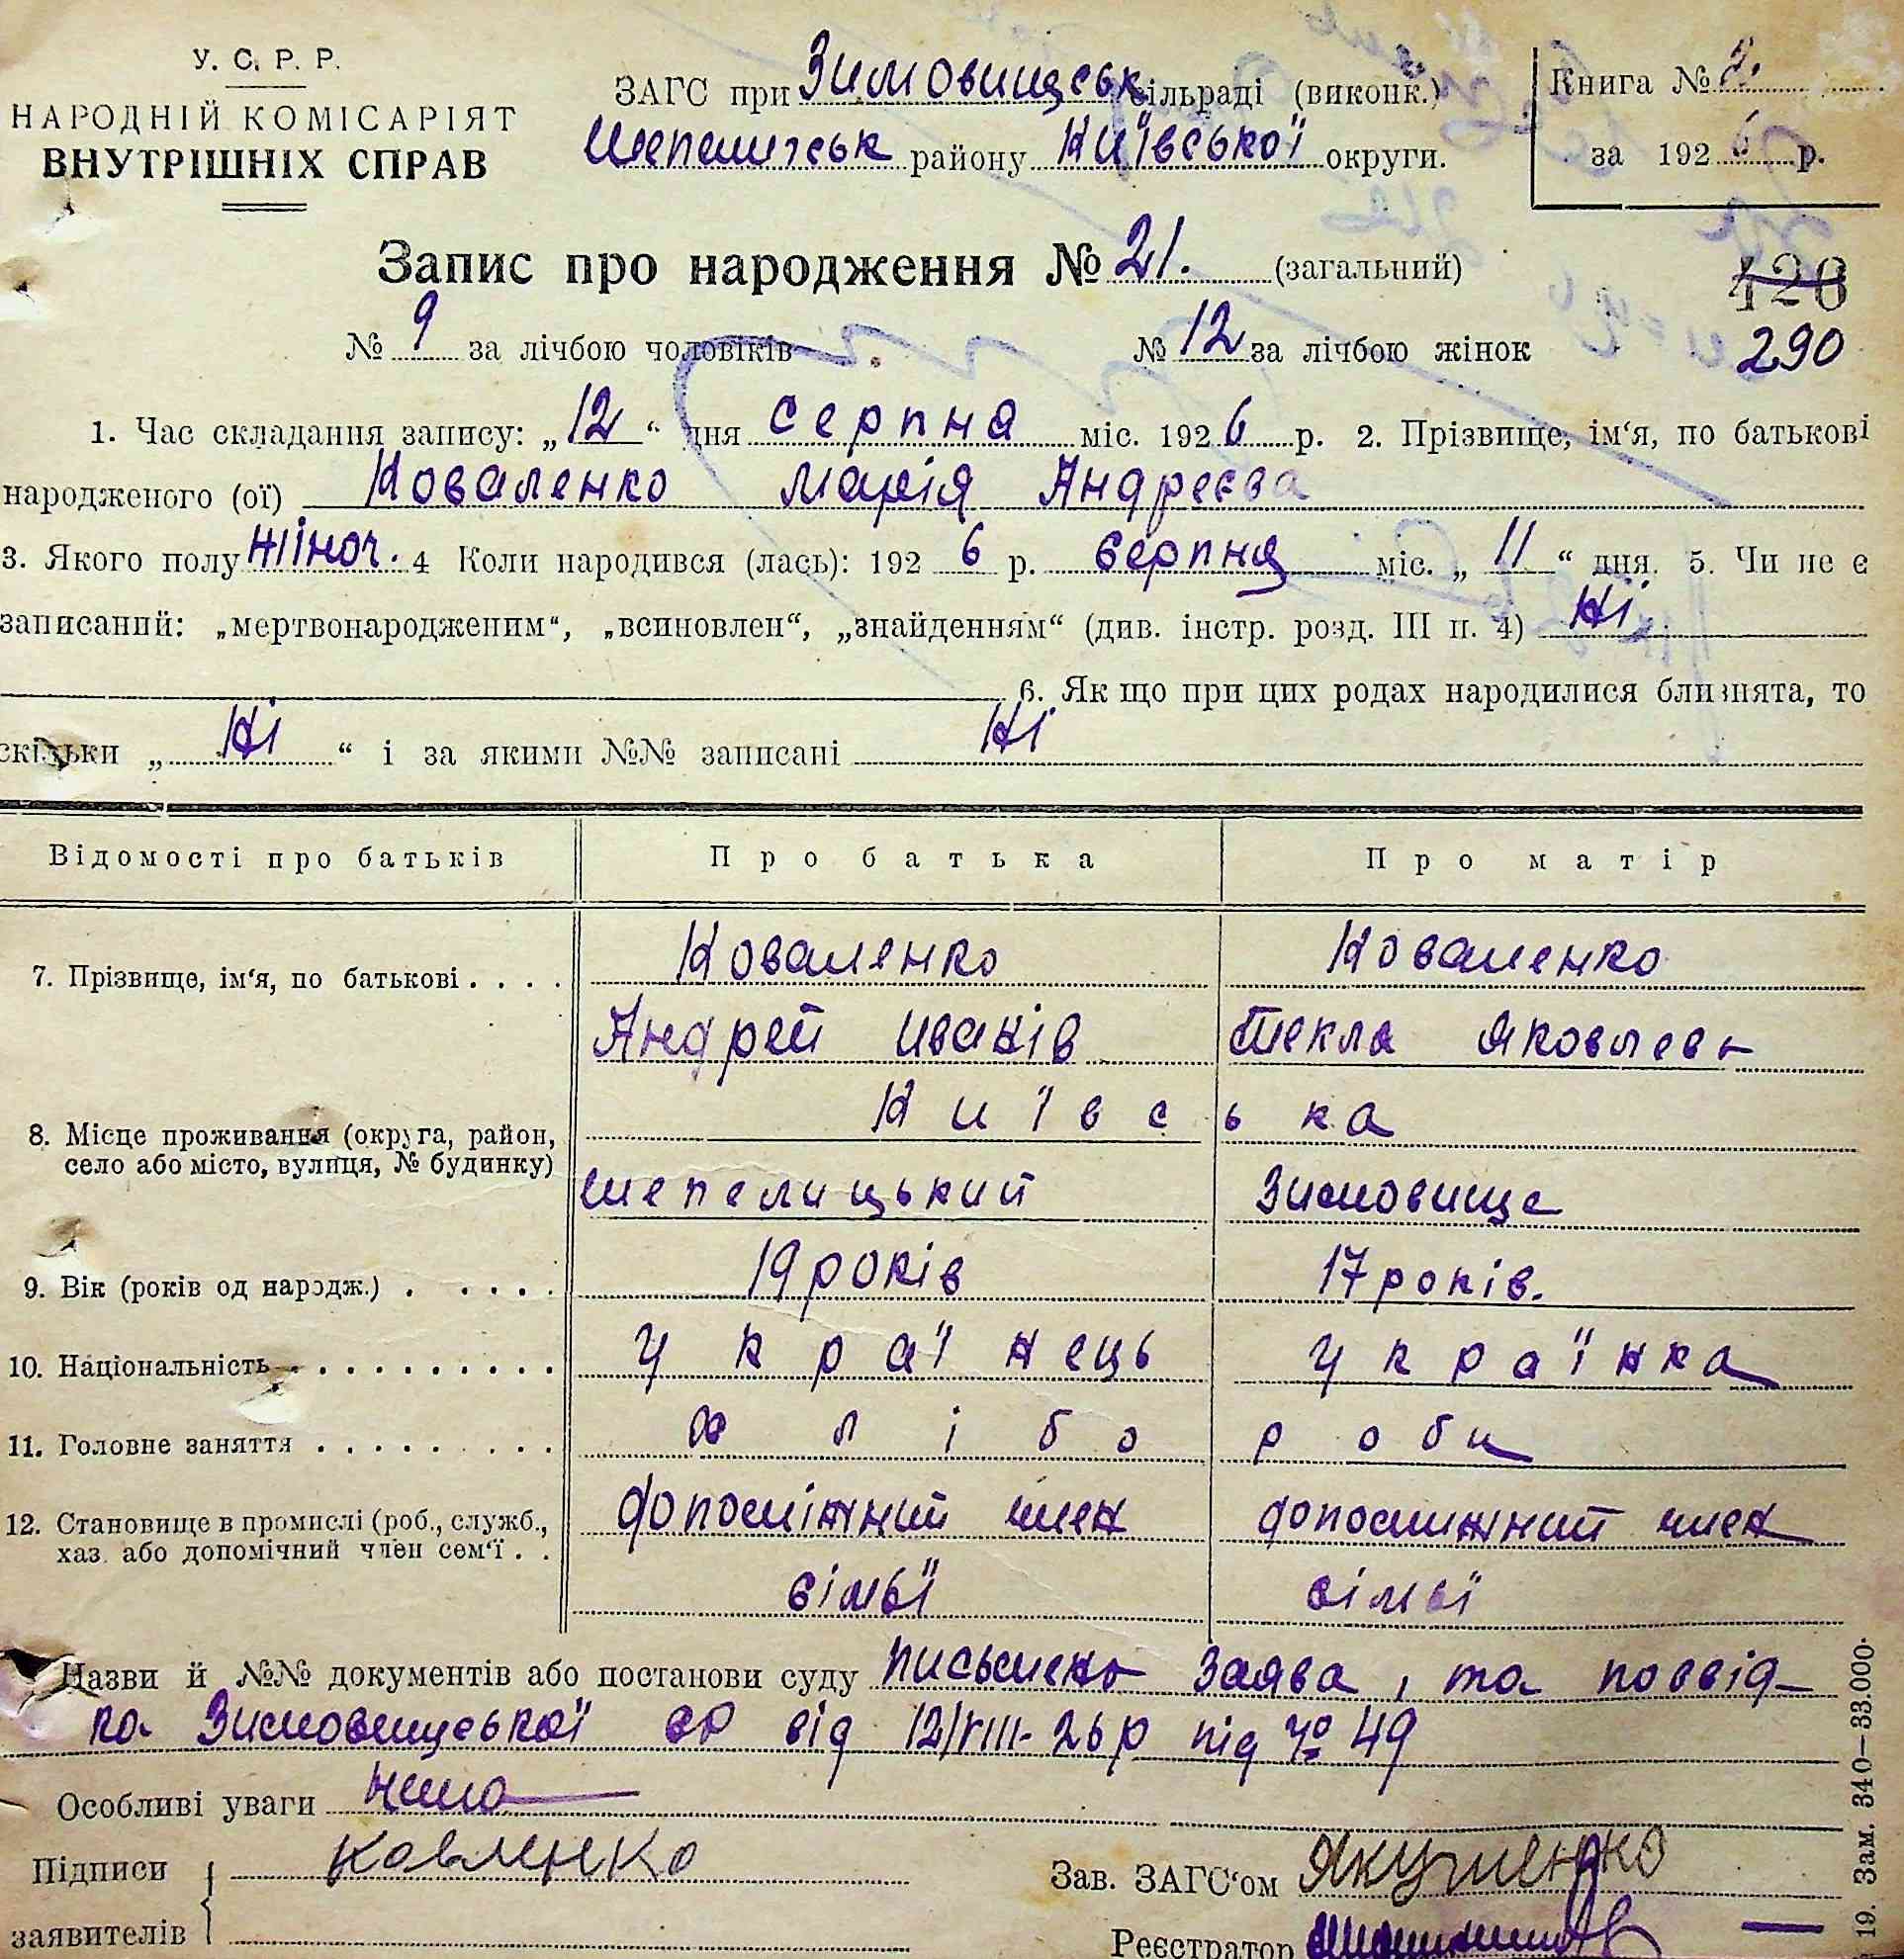 У. С. Р. Р.
НАРОДНІЙ КОМІСАРІЯТ
ВНУТРІШНІХ СПРАВ
ЗАГС при Зимовищськ сільраді (виконк.)
району Київської округи.
Книга №
за 1926 р.
Запис про народження № 21. (загальний)
426
№ 9 за лічбою чоловіків № 12 за лічбою жінок
290
1. Час складання запису: „12“ дня серпня міс. 1926 р. 2. Прізвище, ім‘я, по батькові
народженого (ої) Коваленко Марія Андреєва
3. Якого полу жіноч. 4 Коли народився (лась): 1926 р. серпня міс. „11“ дня. 5. Чи не є
записаний: „мертвонародженим“, „всиновлен“, „знайденням“ (див. інстр. розд. III п. 4) Ні
6. Як що при цих родах народилися близнята, то
скільки „Ні“ і за якими №№ записані Ні
Відомості про батьків Про батька Про матір
7. Прізвище, ім‘я, по батькові . . . . Коваленко Коваленко
Андрей Иванів Текла Яковлевь
8. Місце проживання (округа, район, Київська
село або місто, вулиця, № будинку) шепелицький Зимовище
9. Вік (років од народж.) . . . . . 19 років 17 років.
10. Національність . . . . . . . . . . українець українка
11. Головне заняття . . . . . . . . . хлібороби
12. Становище в промислі (роб., служб., допоміжний член допоми­жний член
хаз. або допомічний член сем‘ї . . сімьї сімьї
Назви й №№ документів або постанови суду письмень заява, та посвід-
ка Зимовищської ср від 12/VIII-26 р під № 49
Особливі уваги нема
Підписи Ковленко
заявителів
Зав. ЗАГС‘ом Якушенко
Реєстратор
19. Зам. 340—33.000.